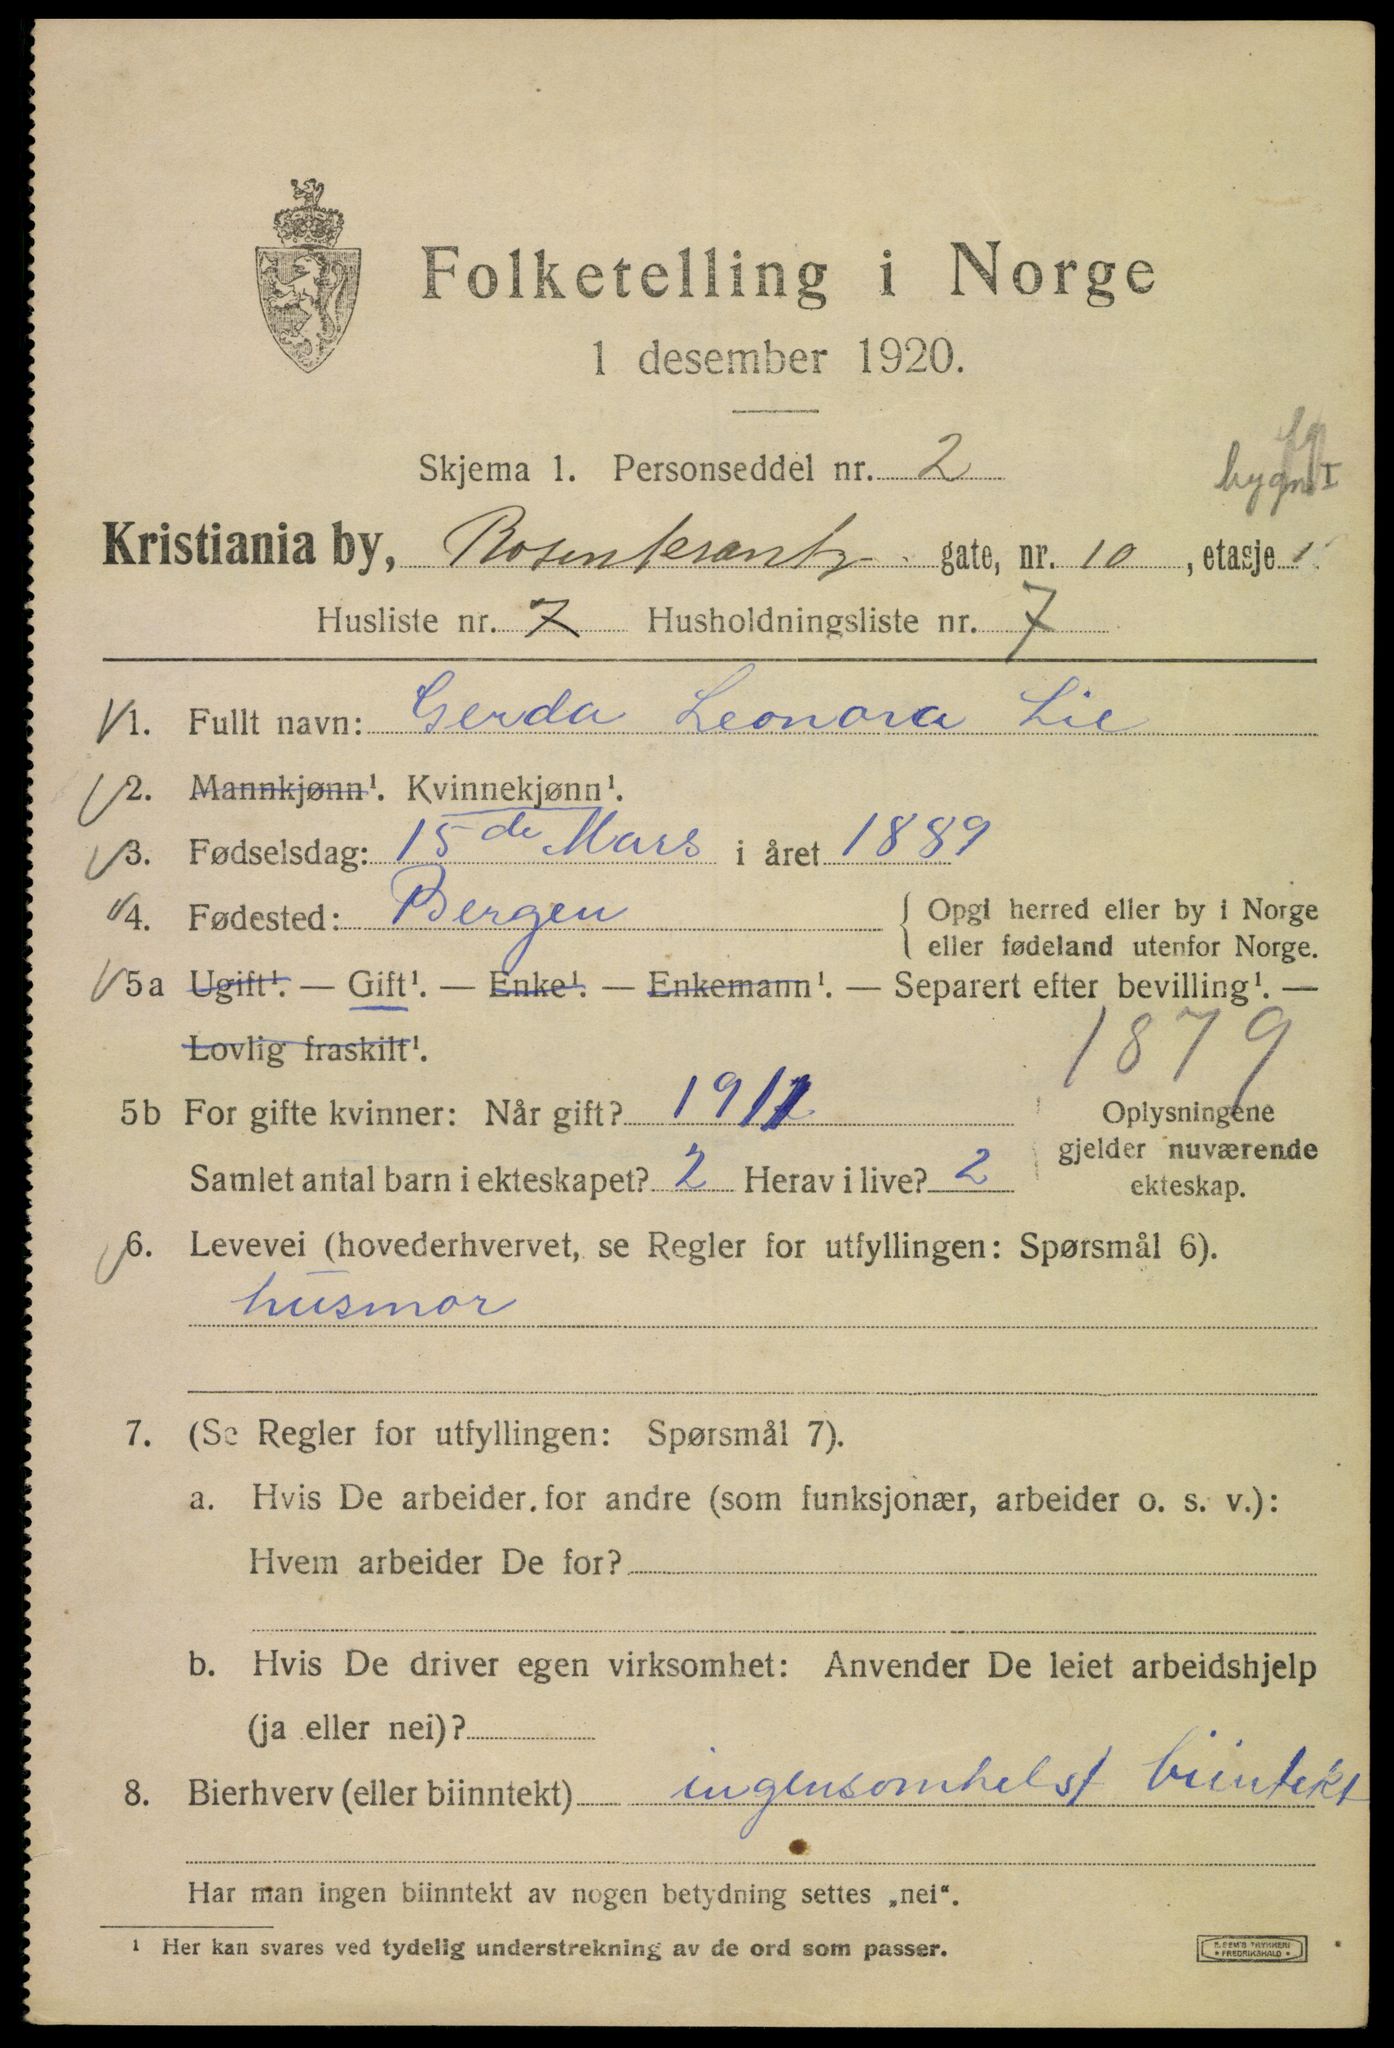 Folketelling i Norge
1 desember 1920.
Skjema 1. Personseddel nr. 2
bygn I
Kristiania by, Rosenkrantz gate, nr. 10, etasje 1
Husliste nr. 7 Husholdningsliste nr. 7
1. Fullt navn: Gerda Leonora Lie
2. Mannkjønn¹. Kvinnekjønn¹.
3. Fødselsdag: 15de Mars i året 1889
4. Fødested: Bergen { Opgi herred eller by i Norge
eller fødeland utenfor Norge.
5a Ugift¹. — Gift¹. — Enke¹. — Enkemann¹. — Separert efter bevilling¹. —
Lovlig fraskilt¹.
1879
5b For gifte kvinner: Når gift? 1912 Oplysningene
gjelder nuværende
Samlet antal barn i ekteskapet? 2 Herav i live? 2 ekteskap.
6. Levevei (hovederhvervet, se Regler for utfyllingen: Spørsmål 6).
husmor
7. (Se Regler for utfyllingen: Spørsmål 7).
a. Hvis De arbeider for andre (som funksjonær, arbeider o. s. v.):
Hvem arbeider De for?
b. Hvis De driver egen virksomhet: Anvender De leiet arbeidshjelp
(ja eller nei)?
8. Bierhverv (eller biinntekt) ingensomhelst biintekt
Har man ingen biinntekt av nogen betydning settes „nei“.
¹ Her kan svares ved tydelig understrekning av de ord som passer.
E. SEM'S TRYKKERI
• FREDRIKSHALD •